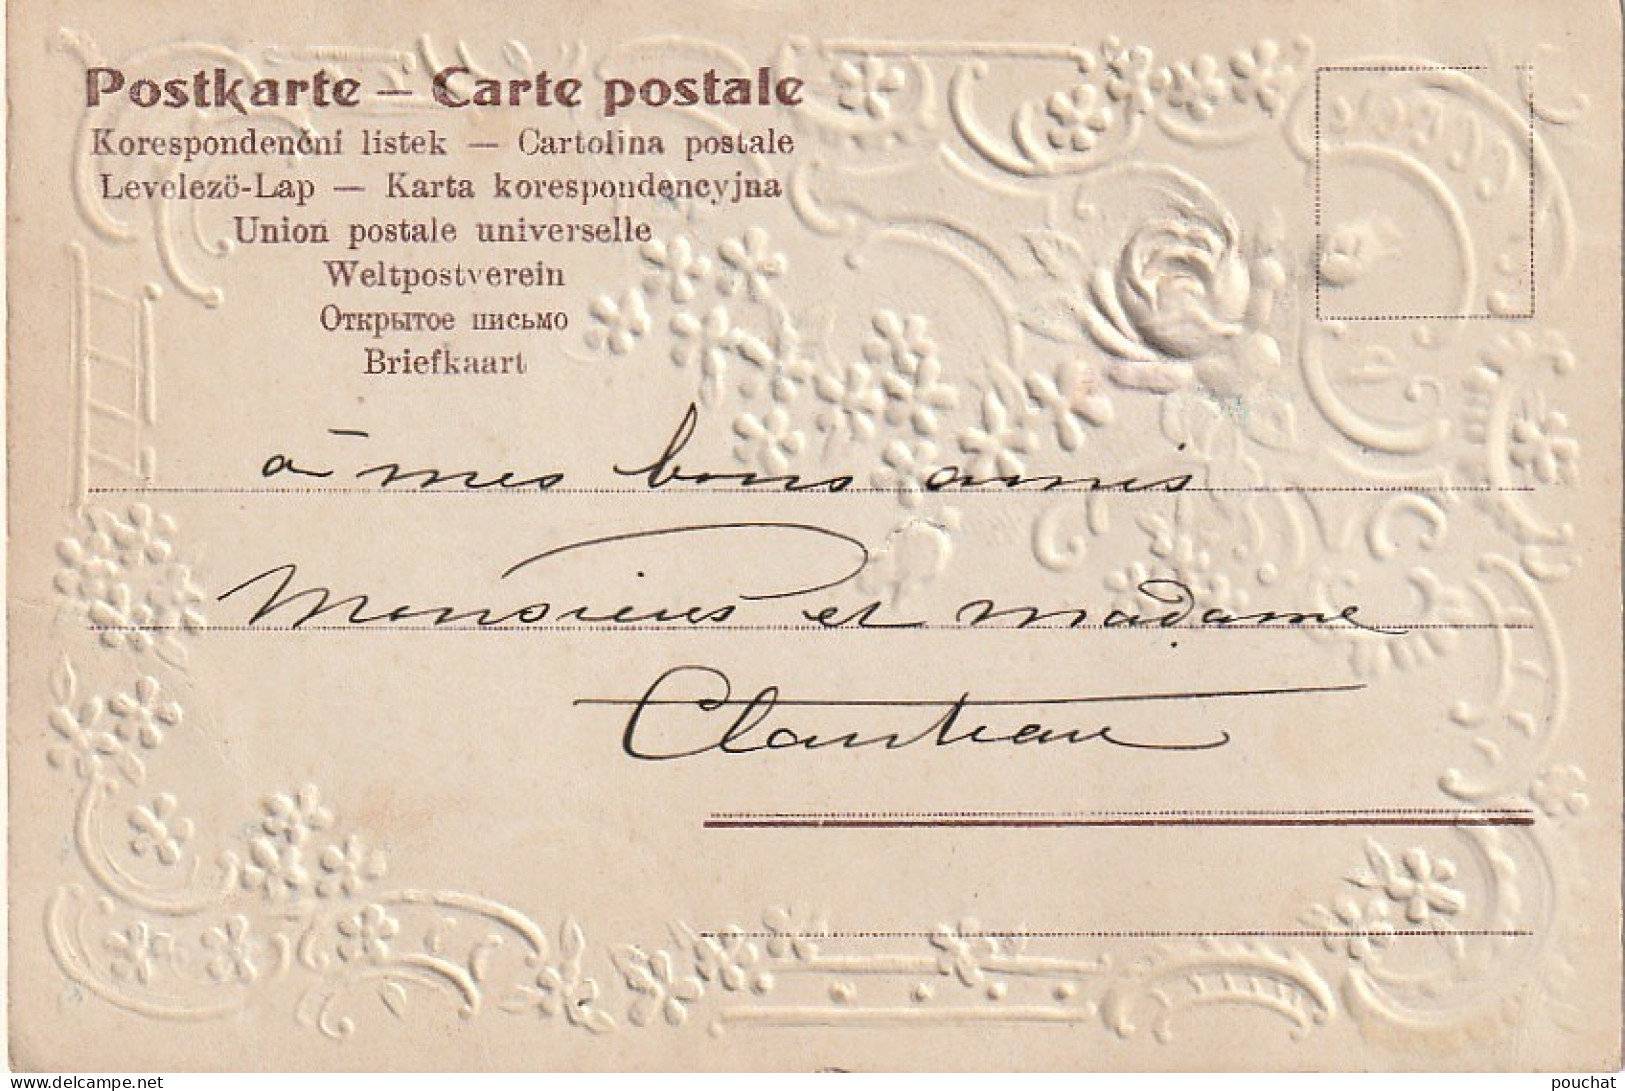 Postkarte – Carte postale
Korespondenčni listek — Cartolina postale
Levelezö-Lap — Karta korespondencyjna
Union postale universelle
Weltpostverein
Открытое письмо
Briefkaart
à mes bons amis
Monsieurs et madame
www.delcampe.net
pouchat